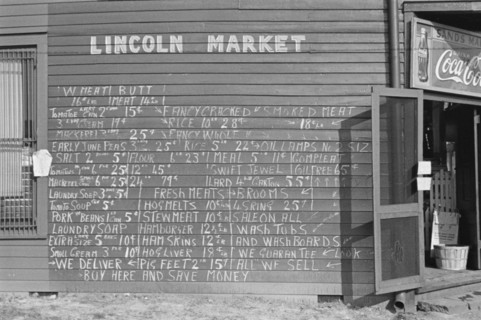 LINCOLN MARKET
SANDS MA
Coca-Cola
"W MEAT! BUTT!
16¢ LB. 1 MEAT 14¢ LB.
2 15¢ FANCY CRACKED SMOKED MEAT
19¢ RICE 10# 28¢ 18¢
MACKEREL 25¢ FANCY WHOLE
EARLY JUNE PEAS 3 25¢ RICE 5# 22¢ OIL LAMPS No 2 SIZ
SALT 2 5¢ FLOUR 23¢ MEAL 5 11¢ COMPLEAT
25¢ 12# 45¢ SWIFT JEWEL OIL FREE 65¢
6 25¢ 24# 79¢ LARD 4# CARTON 55¢
LAUNDRY SOAP 3 5¢ FRESH MEATS BROOM
TOMATO SOUP 5¢ HOG MELTS 10¢ 4 STRING 25¢
PORK & BEANS 5¢ STEW MEAT 10¢ SALE ON ALL
LAUNDRY SOAP HAMBURGER 12½¢ WASH TUBS
EXTRA SIZE 5 BARS 10¢ HAM SKINS 12¢ AND WASH BOARDS
SMALL CREAM 3 10¢ HOG LIVER 18¢ WE GUARANTEE LOOK
WE DELIVER PIG FEET 2 15¢ ALL WE SELL
BUY HERE AND SAVE MONEY